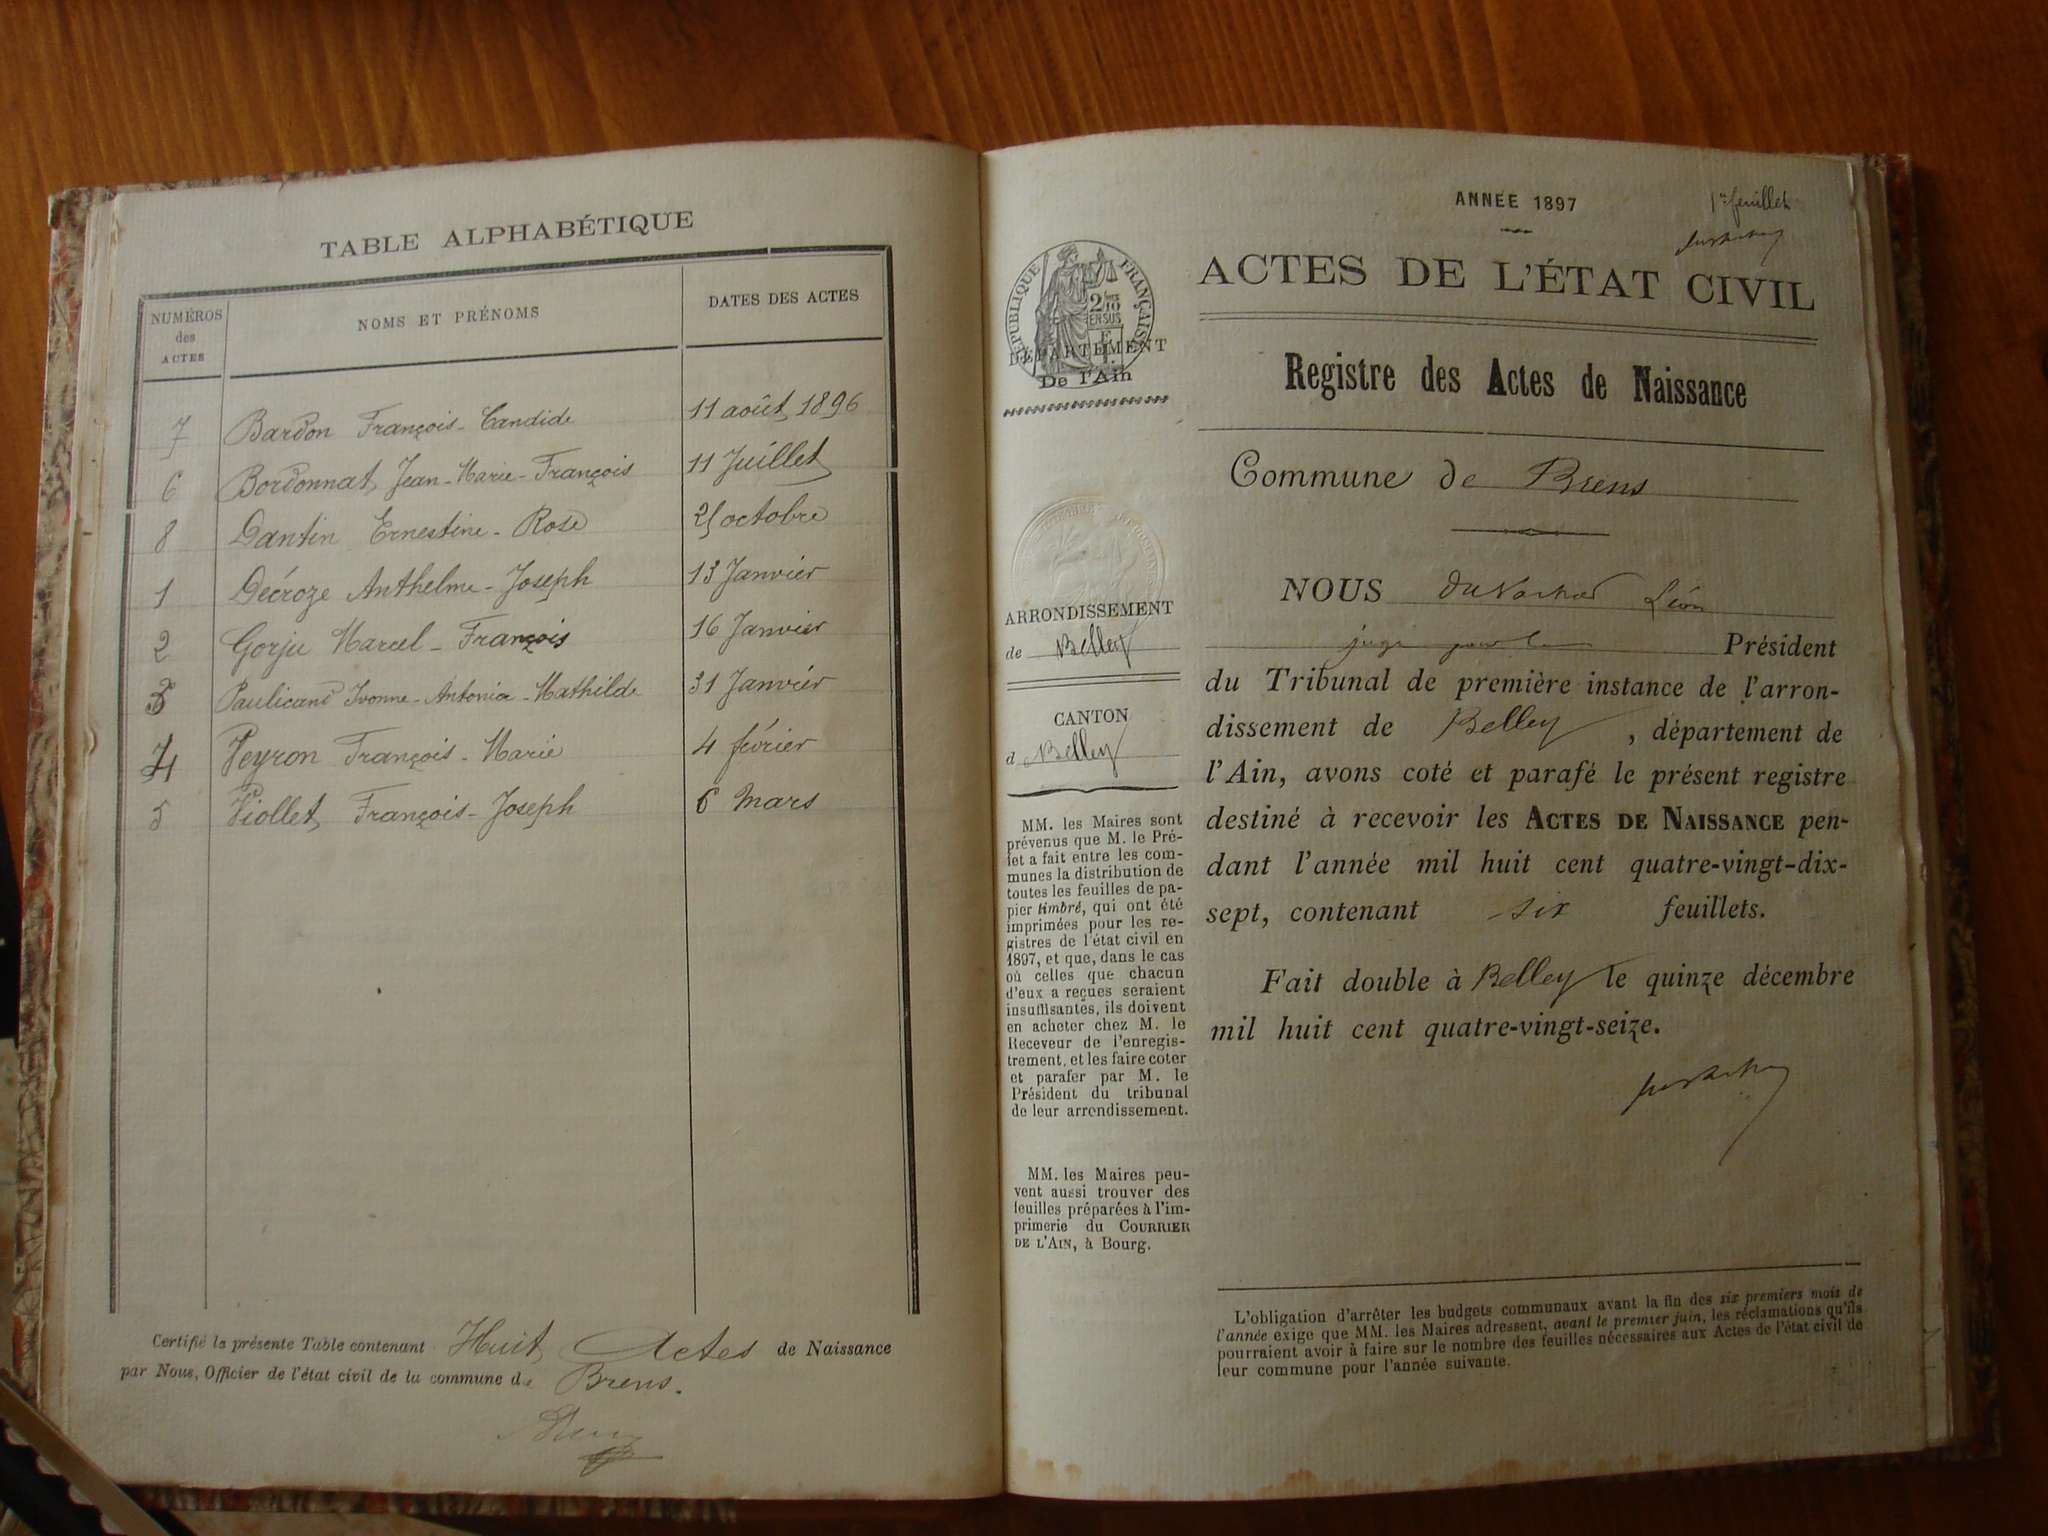 TABLE ALPHABÉTIQUE
NUMÉROS des ACTES
NOMS ET PRÉNOMS
DATES DES ACTES
7 Bardon François-Candide 11 août 1896
6 Bordonnat Jean-Marie-François 11 Juillet
8 Dantin Ernestine-Rose 25 octobre
1 Décroze Anthelme-Joseph 13 Janvier
2 Gorju Marcel-François 16 Janvier
3 Paulicand Ivonne-Antonia-Mathilde 31 Janvier
4 Peyron François-Marie 4 février
5 Viollet François-Joseph 6 Mars
Certifié la présente Table contenant Huit Actes de Naissance
par Nous, Officier de l'état civil de la commune de Brens.
ANNÉE 1897
1er feuillet
ACTES DE L'ÉTAT CIVIL
RÉPUBLIQUE FRANÇAISE
2/10
EN SUS
DÉPARTEMENT
De l'Ain
Registre des Actes de Naissance
Commune de Brens
ARRONDISSEMENT
de Belley
CANTON
d Belley
MM. les Maires sont
prévenus que M. le Pré-
fet a fait entre les com-
munes la distribution de
toutes les feuilles de pa-
pier timbré, qui ont été
imprimées pour les re-
gistres de l'état civil en
1897, et que, dans le cas
où celles que chacun
d'eux a reçues seraient
insuffisantes, ils doivent
en acheter chez M. le
Receveur de l'enregis-
trement, et les faire coter
et parafer par M. le
Président du tribunal
de leur arrondissement.
MM. les Maires peu-
vent aussi trouver des
feuilles préparées à l'im-
primerie du COURRIER
DE L'AIN, à Bourg.
NOUS Léon
juge pour le Président
du Tribunal de première instance de l'arron-
dissement de Belley, département de
l'Ain, avons coté et parafé le présent registre
destiné à recevoir les ACTES DE NAISSANCE pen-
dant l'année mil huit cent quatre-vingt-dix-
sept, contenant six feuillets.
Fait double à Belley le quinze décembre
mil huit cent quatre-vingt-seize.
L'obligation d'arrêter les budgets communaux avant la fin des six premiers mois de
l'année exige que MM. les Maires adressent, avant le premier juin, les réclamations qu'ils
pourraient avoir à faire sur le nombre des feuilles nécessaires aux Actes de l'état civil de
leur commune pour l'année suivante.